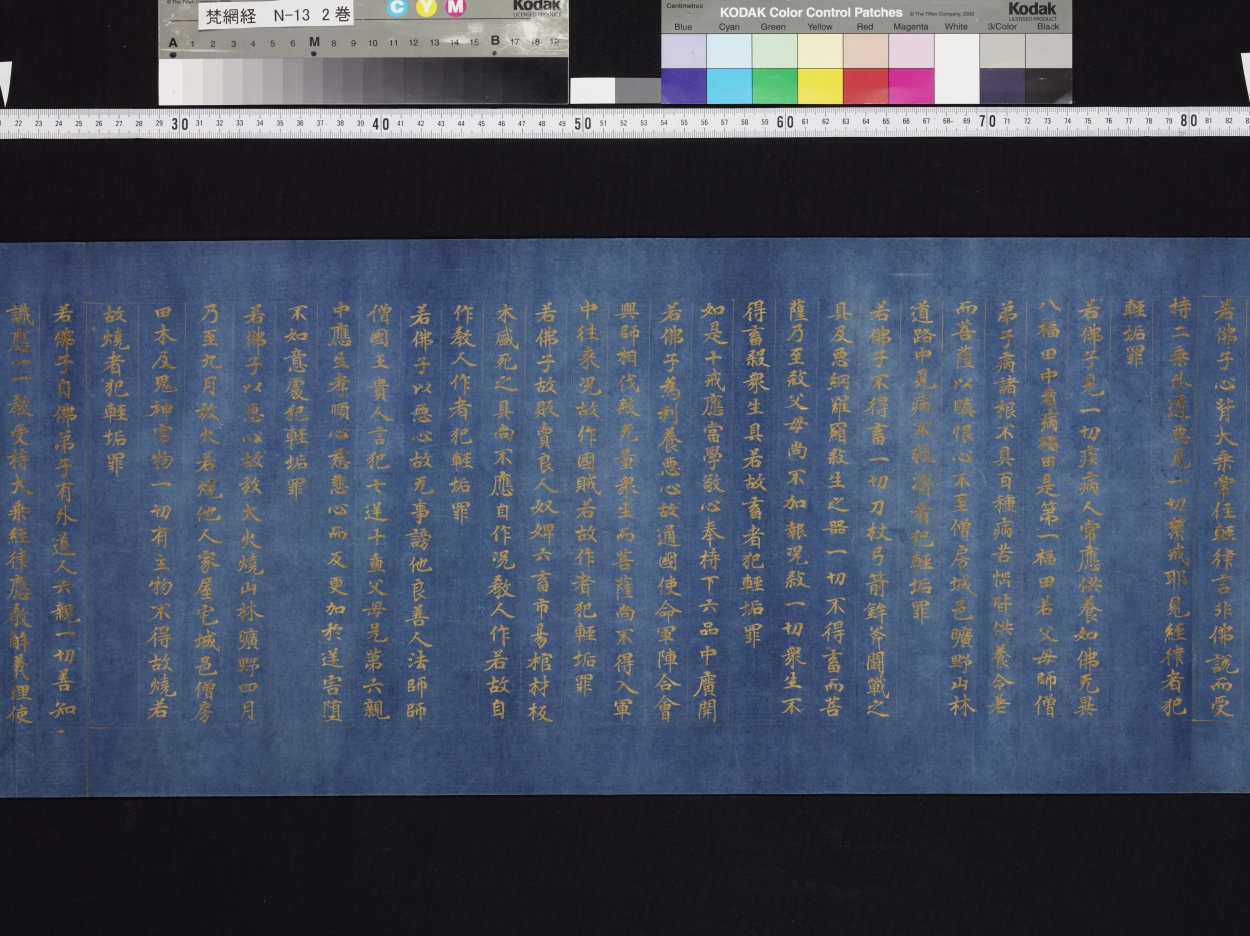 梵網経 N-13 2巻
Kodak
LICENSED PRODUCT
© The Tiffen Company, 2000
C Y M
A 1 2 3 4 5 6 M 8 9 10 11 12 13 14 15 B 17 18 19
Centimetres
KODAK Color Control Patches
© The Tiffen Company, 2000
Kodak
LICENSED PRODUCT
Blue Cyan Green Yellow Red Magenta White 3/Color Black
22 23 24 25 26 27 28 29 30 31 32 33 34 35 36 37 38 39 40 41 42 43 44 45 46 47 48 49 50 51 52 53 54 55 56 57 58 59 60 61 62 63 64 65 66 67 68 69 70 71 72 73 74 75 76 77 78 79 80 81 82
若佛子心背大乗常住經律言非佛説而受
持二乗外道悪見一切禁戒耶見經律者犯
輕垢罪
若佛子見一切疾病人常應供養如佛无異
八福田中看病福田是第一福田若父母師僧
弟子病諸根不具百種病苦惱皆供養令差
而菩薩以瞋恨心不至僧房城邑曠野山林
道路中見病不救濟者犯輕垢罪
若佛子不得畜一切刀杖弓箭鉾斧闘戰之
具及悪網羅羂殺生之器一切不得畜而菩
薩乃至殺父母尚不加報況殺一切衆生不
得畜殺衆生具若故畜者犯輕垢罪
如是十戒應當學敬心奉持下六品中廣開
若佛子為利養悪心故通國使命軍陣合會
興師相伐殺无量衆生而菩薩尚不得入軍
中往来況故作國賊若故作者犯輕垢罪
若佛子故販賣良人奴婢六畜市易棺材板
木盛死之具尚不應自作況教人作若故自
作教人作者犯輕垢罪
若佛子以悪心故无事謗他良善人法師師
僧國王貴人言犯七逆十重父母兄弟六親
中應生孝順心慈悲心而反更加於逆害堕
不如意處犯輕垢罪
若佛子以悪心故放大火燒山林曠野四月
乃至九月放火若燒他人家屋宅城邑僧房
田木及鬼神官物一切有主物不得故燒若
故燒者犯輕垢罪
若佛子自佛弟子有外道人六親一切善知
識應一一教受持大乗經律應教解義理使